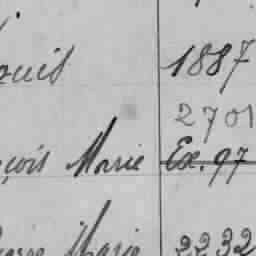 ouis 1887
2701
çois Marie Ex. 97
Marie 2232